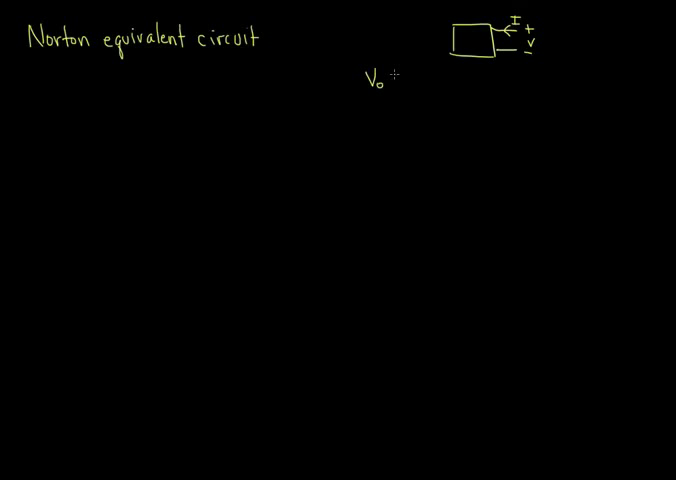 Norton equivalent circuit
I
+
V
-
V₀